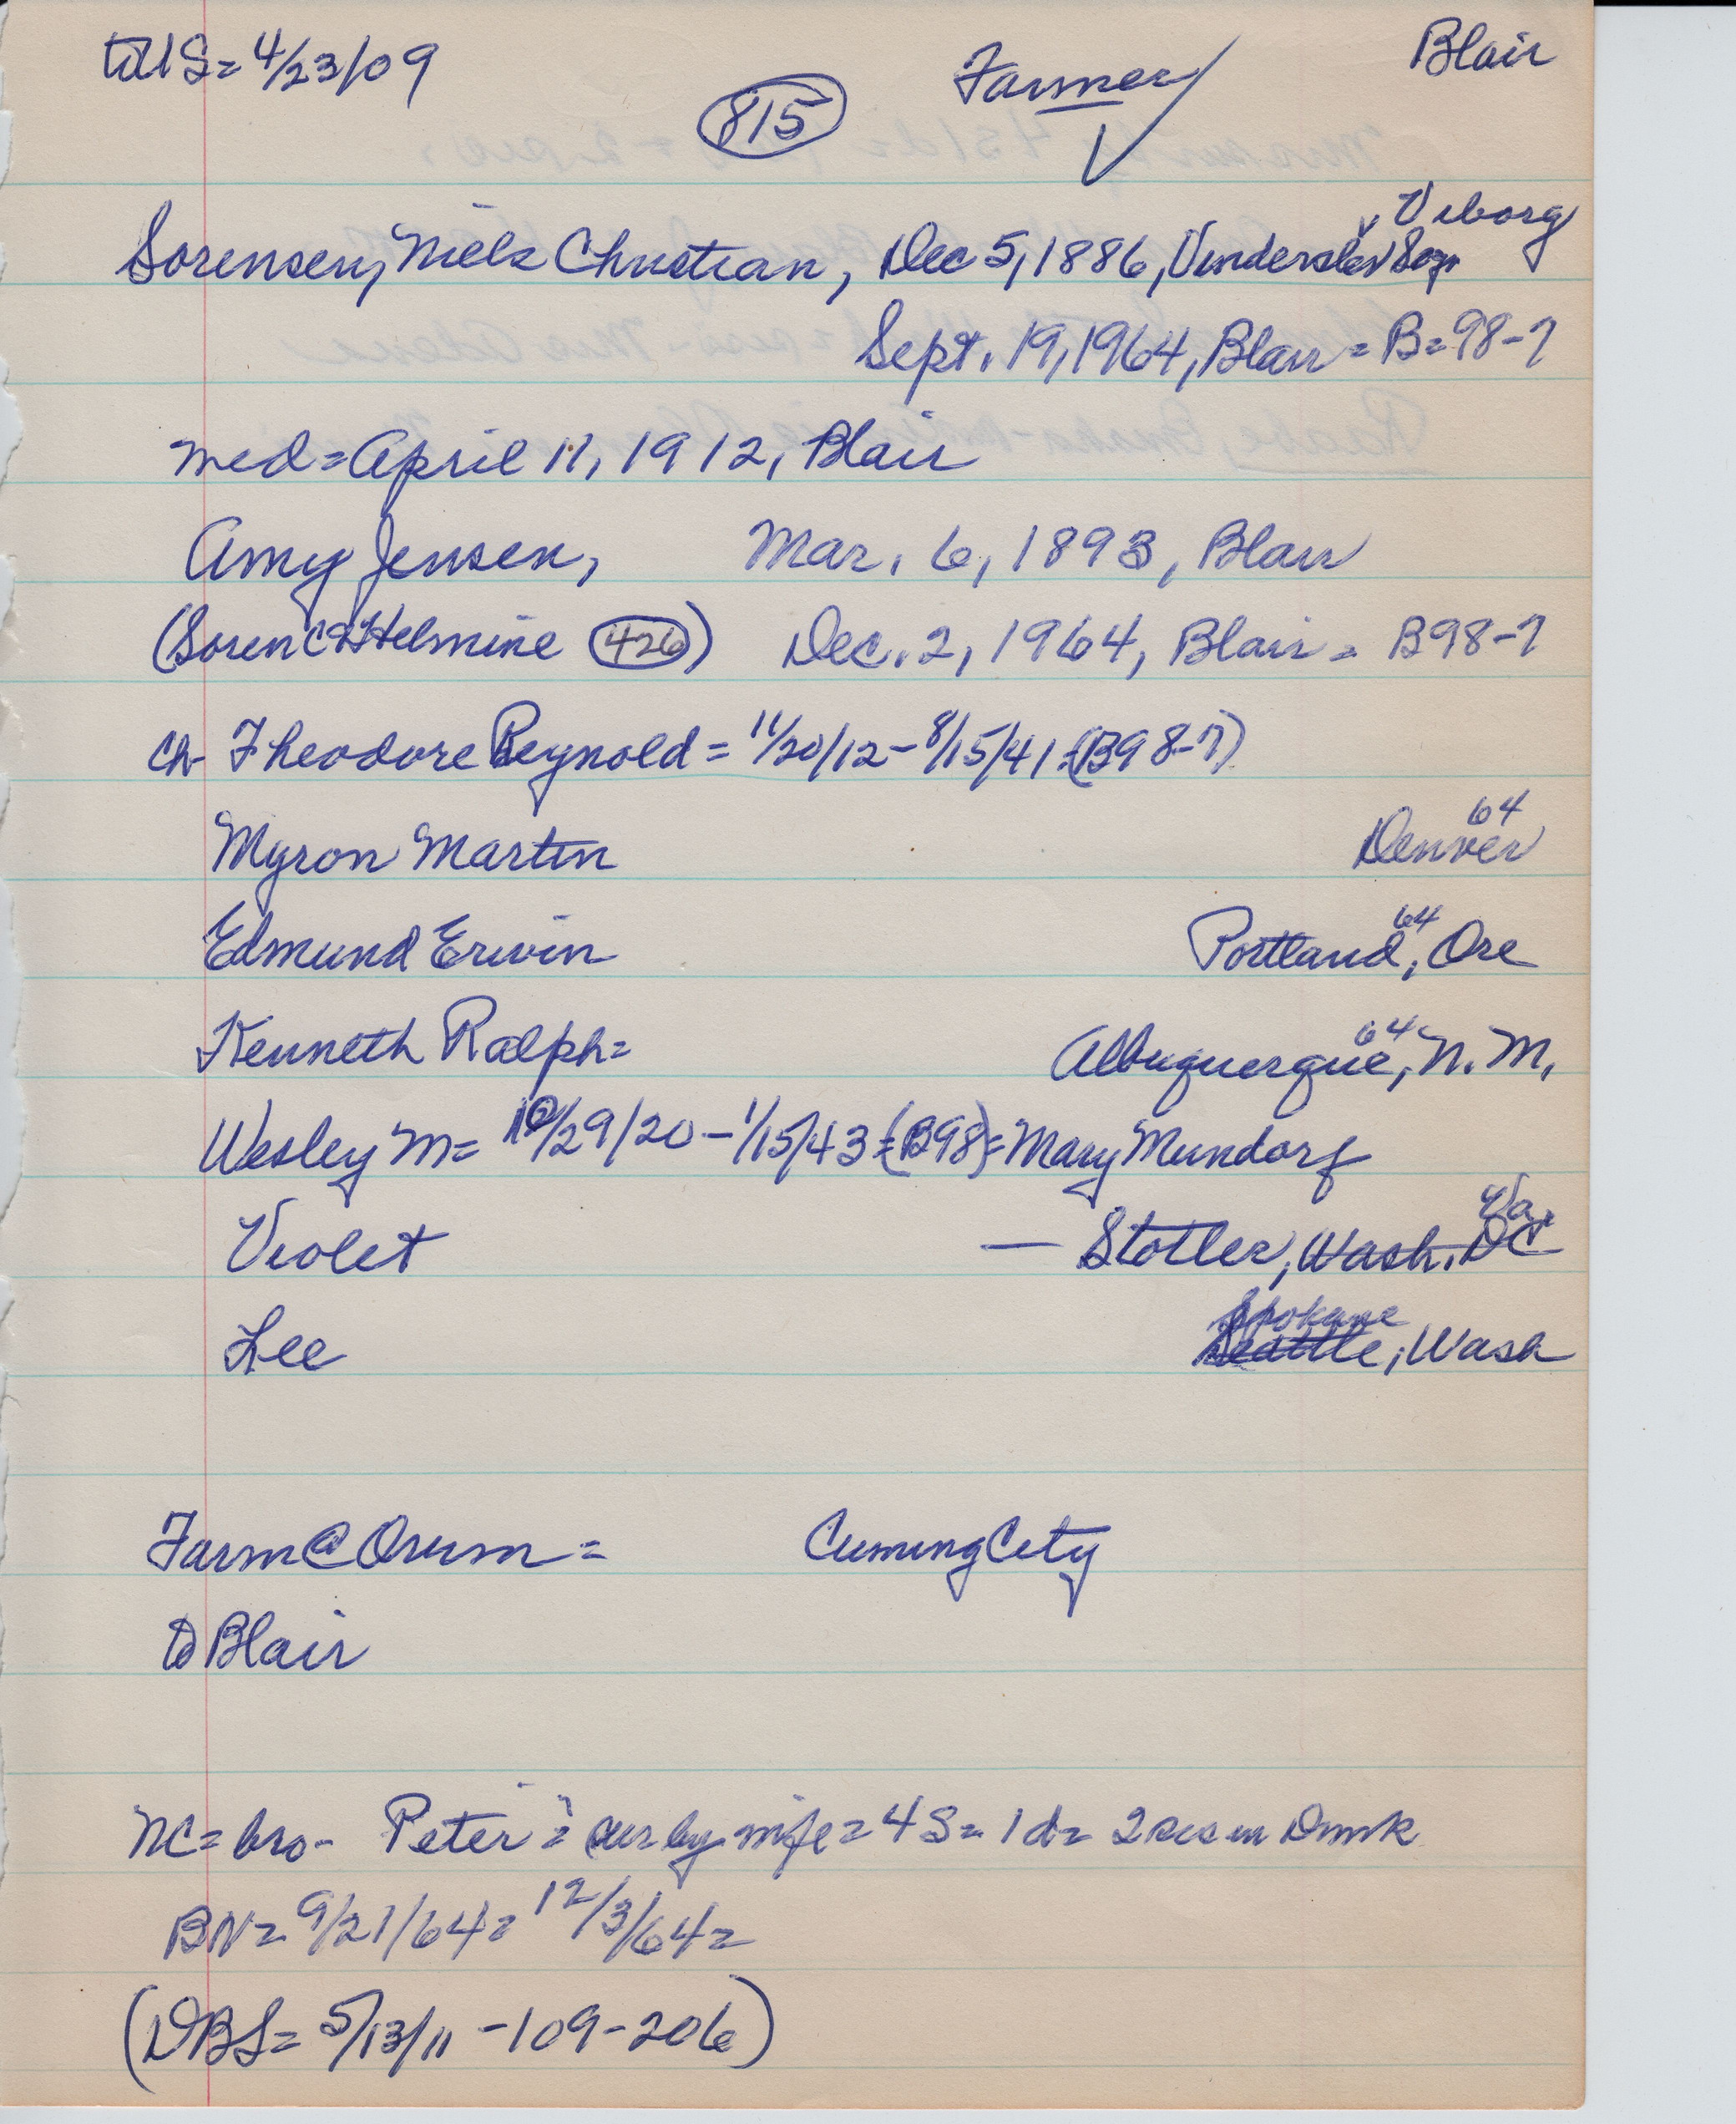 to US = 4/23/09
815
Farmer
Blair
Viborg
Sorensen, Niels Christian, Dec 5, 1886, Vinderslev Sogn
Sept. 19, 1964, Blair = B = 98-7
med = April 11, 1912, Blair
Amy Jensen, Mar. 6, 1893, Blair
(Soren C & Helmine 426) Dec. 2, 1964, Blair = B98-7
ch - Theodore Reynold = 11/20/12 - 8/15/41 = (B98-7)
Myron Martin Denver 64
Edmund Erwin Portland, Ore 64
Kenneth Ralph = Albuquerque, N.M. 64
Wesley M = 10/29/20 - 1/15/43 = (B98) = Mary Mundorf
Violet — Stotler, Wash. DC Va.
Lee Seattle Spokane, Wash
Farm @ Orum = Cuming City
to Blair
NC = bro - Peter = sur by wife = 4 S = 1 d = 2 sis in Dmk
BN = 9/21/64 = 12/3/64 =
(DBS = 5/13/11 - 109 - 206)